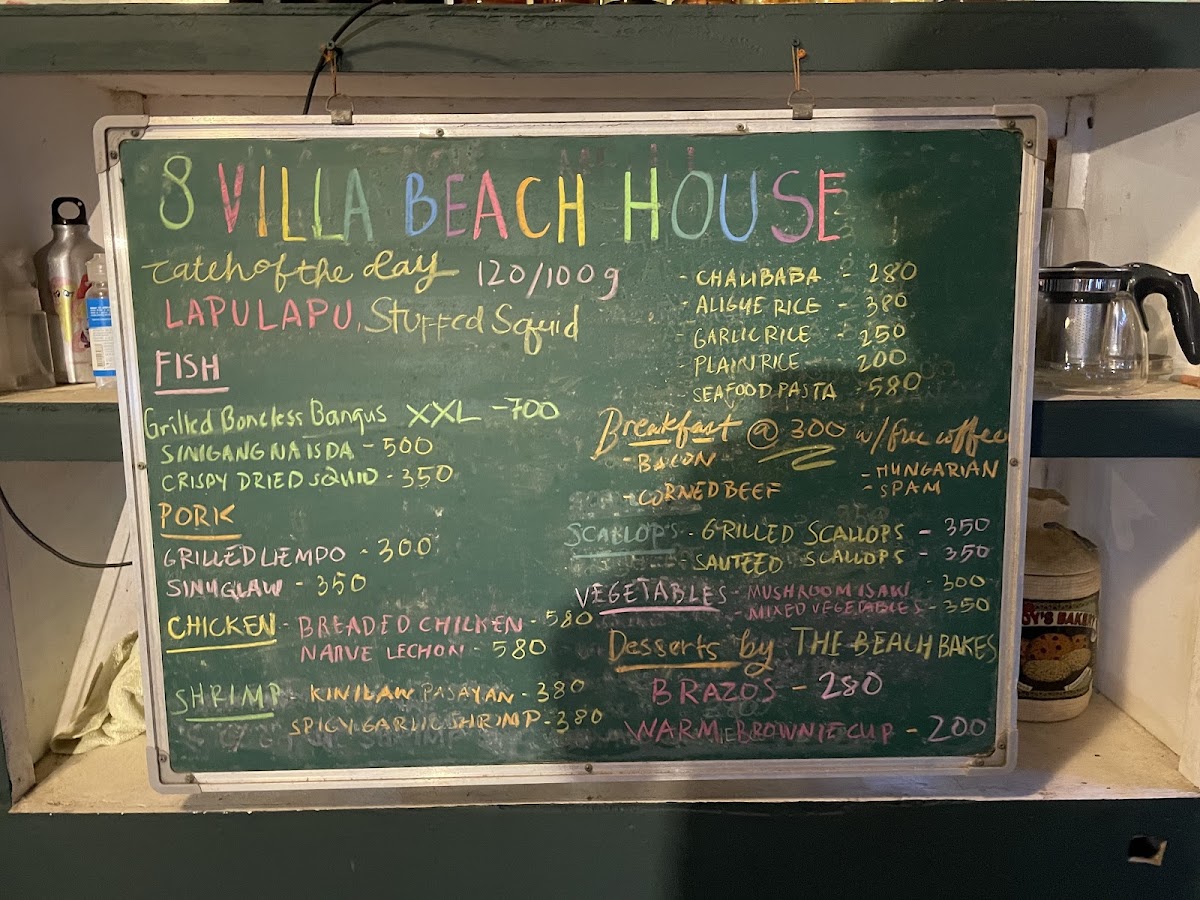 8 VILLA BEACH HOUSE
Catch of the day 120/100g
LAPULAPU, Stuffed Squid
FISH
Grilled Boneless Bangus XXL - 700
SINIGANG NA ISDA - 500
CRISPY DRIED SQUID - 350
PORK
GRILLED LIEMPO - 300
SINUGLAW - 350
CHICKEN - BREADED CHICKEN - 580
NATIVE LECHON - 580
SHRIMP - KINILAW PASAYAN - 380
SPICY GARLIC SHRIMP - 380
- CHALIBABA - 280
- ALIGUE RICE - 380
- GARLIC RICE - 250
- PLAIN RICE - 200
- SEAFOOD PASTA - 580
Breakfast @ 300 w/ free coffee
- BACON - HUNGARIAN
- CORNED BEEF - SPAM
SCALLOPS - GRILLED SCALLOPS - 350
- SAUTEED SCALLOPS - 350
VEGETABLES - MUSHROOM ISAW - 300
- MIXED VEGETABLES - 350
Desserts by THE BEACH BAKES
BRAZOS - 280
WARM BROWNIE CUP - 200